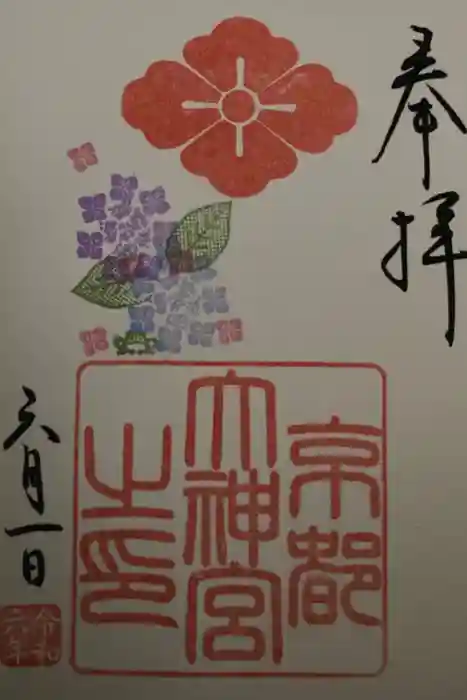 奉拝
京都
大神宮
之印
六月一日
令和
六年